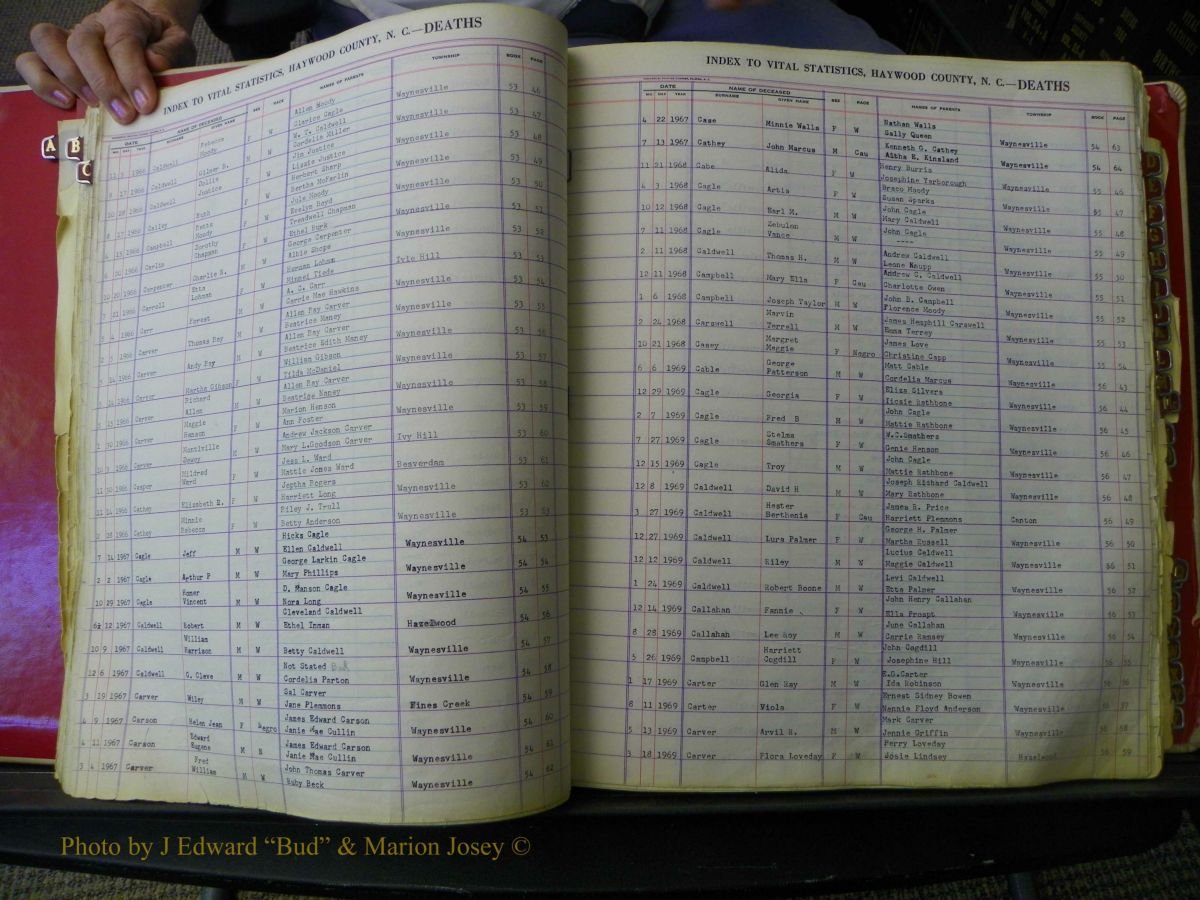 INDEX TO VITAL STATISTICS, HAYWOOD COUNTY, N. C.—DEATHS
DATE NAME OF DECEASED SEX RACE NAMES OF PARENTS TOWNSHIP BOOK PAGE
SURNAME GIVEN NAME
1966 Caldwell Rebecca Moody F W Allen Moody Clarice Cagle Waynesville 53 46
17 1966 Caldwell M W W. T. Caldwell Cordelia Miller Waynesville 53 47
1966 Caldwell Dollie Justice F W Jim Justice Lizzie Justice Waynesville 53 48
1966 Calley Ruth F W Herbert Sharp Bertha McFarlin Waynesville 53 49
1966 Campbell Moody F W Jule Moody Evelyn Boyd Waynesville 53 50
1966 Carlin Dorothy Chapman F W Treadwell Chapman Ethel Burk Waynesville 53 51
1966 Carpenter Charlie R. M W George Carpenter Albie Shope Waynesville 53 52
1966 Carroll Etta Lohman F W Herman Lohman Minnei Tiede Ivie Hill 53 53
1966 Carr Forest M W A. C. Carr Carrie Mae Hawkins Waynesville 53 54
1966 Carver Thomas Ray M W Allen Ray Carver Beatrice Maney Waynesville 53 55
1966 Carver Andy Ray M W Allen Ray Carver Beatrice Edith Maney Waynesville 53 56
1966 Carter Martha Gibson F W William Gibson Tilda McDaniel Waynesville 53 57
1966 Carver Richard Allen M W Allen Ray Carver Beatrice Maney Waynesville 53 58
1966 Carver Maggie Henson F W Marion Henson Ann Foster Waynesville 53 59
1966 Carver Huntlville Dewey M W Andrew Jackson Carver Mary L.Goodson Carver Ivy Hill 53 60
1966 Casper Mildred Ward F W Jess L. Ward Mattie Jones Ward Beaverdam 53 61
1966 Cathey Elizabeth R. F W Jeptha Rogers Harriett Long Waynesville 53 62
1966 Cathey Minnie Rebecca F W Riley J. Trull Betty Anderson Waynesville 53 63
7 14 1967 Cagle Jeff M W Hicks Cagle Ellen Caldwell Waynesville 54 53
2 2 1967 Cagle Arthur P M W George Larkin Cagle Mary Phillips Waynesville 54 54
10 29 1967 Cagle Homer Vincent M W D. Manson Cagle Nora Long Waynesville 54 55
12 1967 Caldwell Robert M W Cleveland Caldwell Ethel Inman Hazelwood 54 56
10 9 1967 Caldwell William Harrison M W Betty Caldwell Waynesville 54 57
12 6 1967 Caldwell G. Cleve M W Not Stated Cordelia Parton Waynesville 54 58
3 19 1967 Carver Wiley M W Gal Carver Jane Plemmons Fines Creek 54 59
4 9 1967 Carson Helen Jean F Negro James Edward Carson Janie Mae Cullin Waynesville 54 60
4 11 1967 Carson Edward Eugene M N James Edward Carson Janie Mae Cullin Waynesville 54 61
3 4 1967 Carver Fred William M W John Thomas Carver Ruby Beck Waynesville 54 62
INDEX TO VITAL STATISTICS, HAYWOOD COUNTY, N. C.—DEATHS
DATE NAME OF DECEASED SEX RACE NAMES OF PARENTS TOWNSHIP BOOK PAGE
MO. DAY YEAR SURNAME GIVEN NAME
4 22 1967 Case Minnie Walls F W Nathan Walls Sally Queen Waynesville 54 63
7 13 1967 Cathey John Marcus M Cau Kenneth G. Cathey Aitha R. Kinsland Waynesville 54 64
11 21 1968 Cabe Alida F W Henry Burris Josephine Yarborough Waynesville 55 46
4 3 1968 Cagle Artis F W Braco Moody Susan Sparks Waynesville 55 47
10 12 1968 Cagle Earl M. M W John Cagle Mary Caldwell Waynesville 55 48
7 11 1968 Cagle Zebulon Vance M W John Cagle ---- Waynesville 55 49
2 11 1968 Caldwell Thomas H. M W Andrew Caldwell Leone Knupp Waynesville 55 50
12 11 1968 Campbell Mary Ella F Cau Andrew G. Caldwell Charlotte Owen Waynesville 55 51
1 6 1968 Campbell Joseph Taylor M W John B. Campbell Florence Moody Waynesville 55 52
2 24 1968 Carswell Marvin Terrell M W James Hemphill Carswell Emma Terrey Waynesville 55 53
10 21 1968 Casey Margret Maggie F Negro James Love Christine Capp Waynesville 55 54
6 6 1969 Cable George Patterson M W Matt Cable Cordelia Marcus Waynesville 56 43
12 29 1969 Cagle Georgia F W Eliza Silvers Dicsie Rathbone Waynesville 56 44
2 7 1969 Cagle Fred B M W John Cagle Mattie Rathbone Waynesville 56 45
7 27 1969 Cagle Stelma Smathers F W W.C.Smathers Genie Henson Waynesville 56 46
12 15 1969 Cagle Troy M W John Cagle Mattie Rathbone Waynesville 56 47
12 8 1969 Caldwell David H M W Joseph Richard Caldwell Mary Rathbone Waynesville 56 48
3 27 1969 Caldwell Hester Berthenia F Cau James R. Price Harriett Plemmons Canton 56 49
12 27 1969 Caldwell Lura Palmer F W George H. Palmer Martha Russell Waynesville 56 50
12 12 1969 Caldwell Riley M W Lucius Caldwell Maggie Caldwell Waynesville 56 51
1 24 1969 Caldwell Robert Boone M W Levi Caldwell Etta Palmer Waynesville 56 52
12 14 1969 Callahan Fannie F W John Henry Callahan Ella Froapt Waynesville 56 53
8 28 1969 Callahan Lee Roy M W June Callahan Carrie Ramsey Waynesville 56 54
5 26 1969 Campbell Harriett Cogdill F W John Cagdill Josephine Hill Waynesville 56 55
1 17 1969 Carter Glen Ray M W E.G.Carter Ida Robinson Waynesville 56 56
8 11 1969 Carter Viola F W Ernest Sidney Bowen Nannie Floyd Anderson Waynesville 56 57
5 13 1969 Carver Arvil H. M W Mark Carver Jennie Griffin Waynesville 56 58
3 18 1969 Carver Flora Loveday F W Perry Loveday Josie Lindsey Hazelwood 56 59
A B C
Photo by J Edward “Bud” & Marion Josey ©